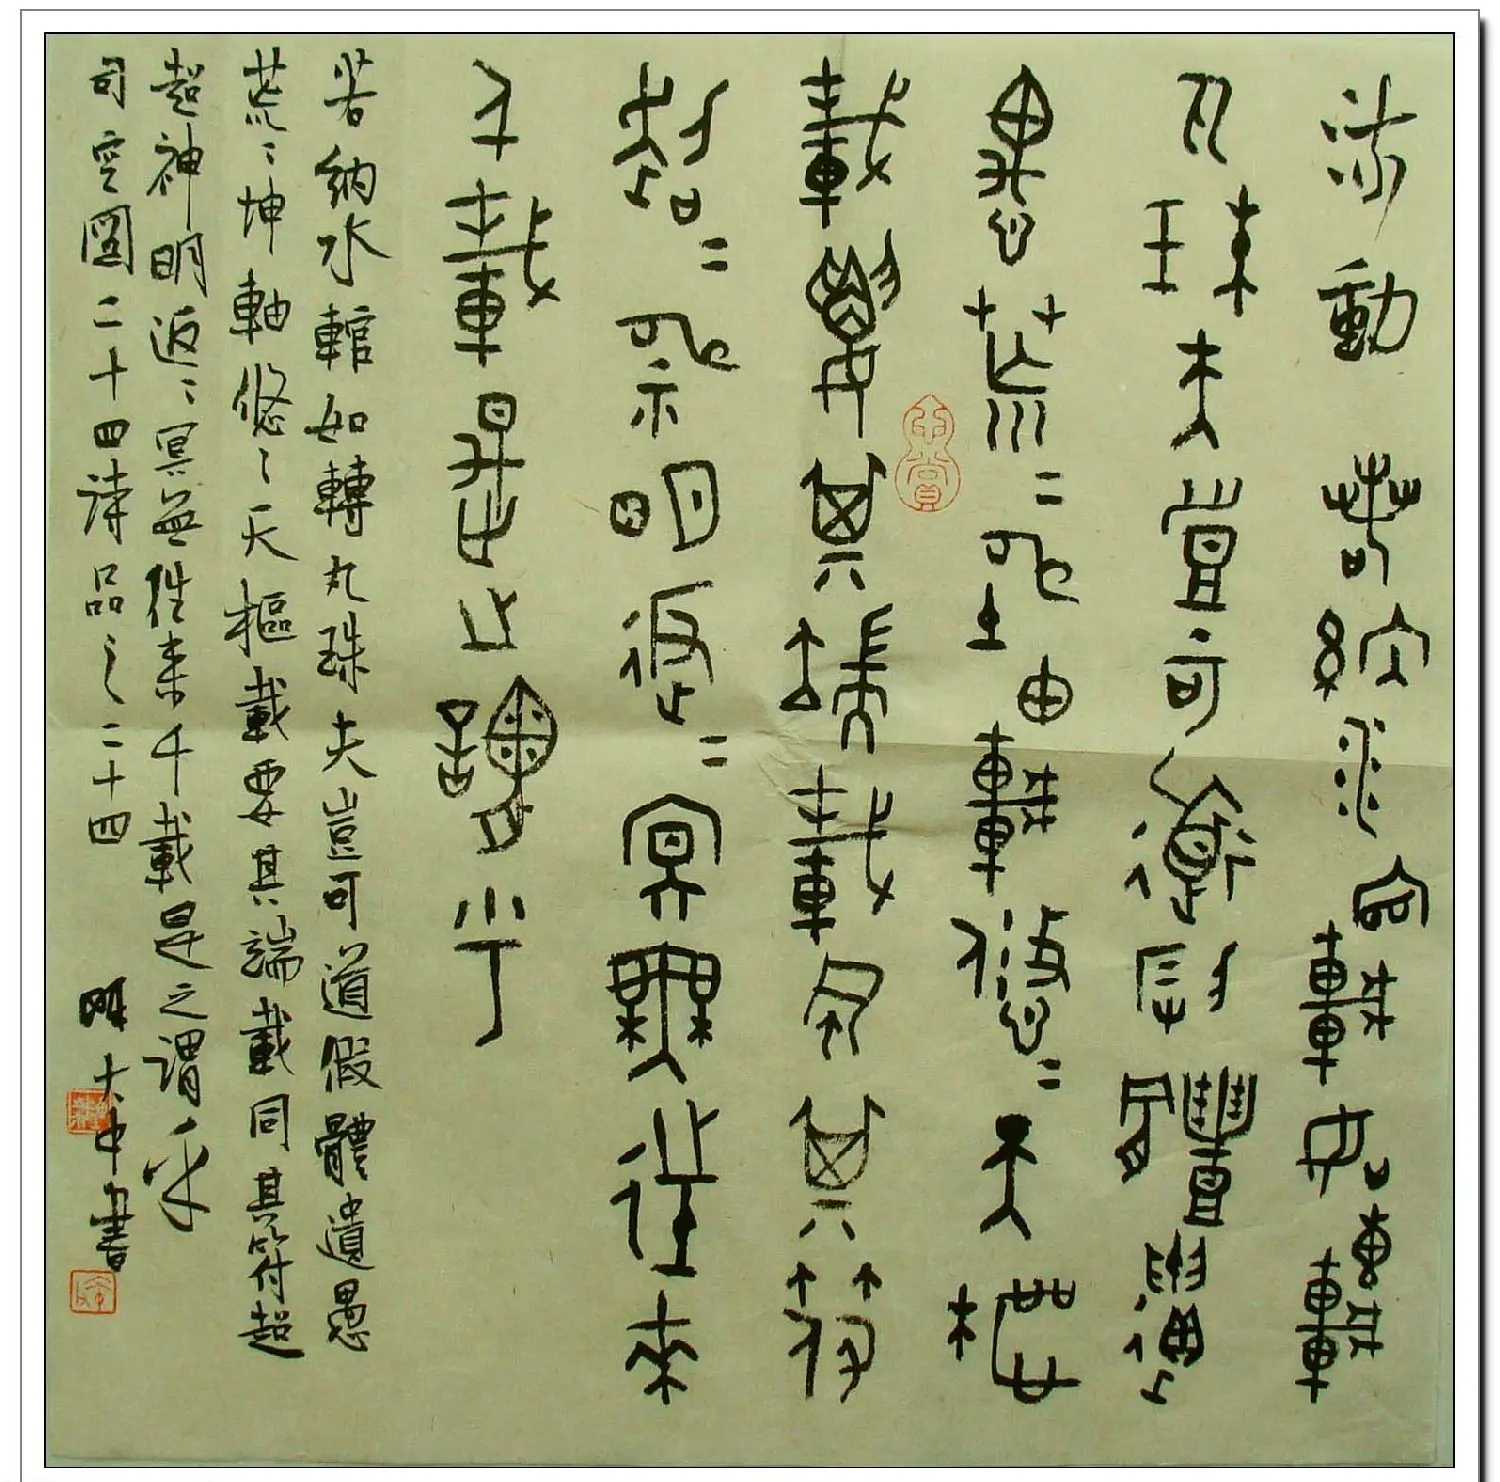 流動 若納水輨如轉
丸珠夫豈可道假體遺
愚荒〻坤軸悠〻天樞
載要其端載同其符
超〻神明返〻冥無往來
千載是之謂乎
若納水輨如轉丸珠夫豈可道假體遺愚
荒〻坤軸悠〻天樞載要其端載同其符超
超神明返〻冥無往來千載是之謂乎
司空圖二十四詩品之二十四 大中書